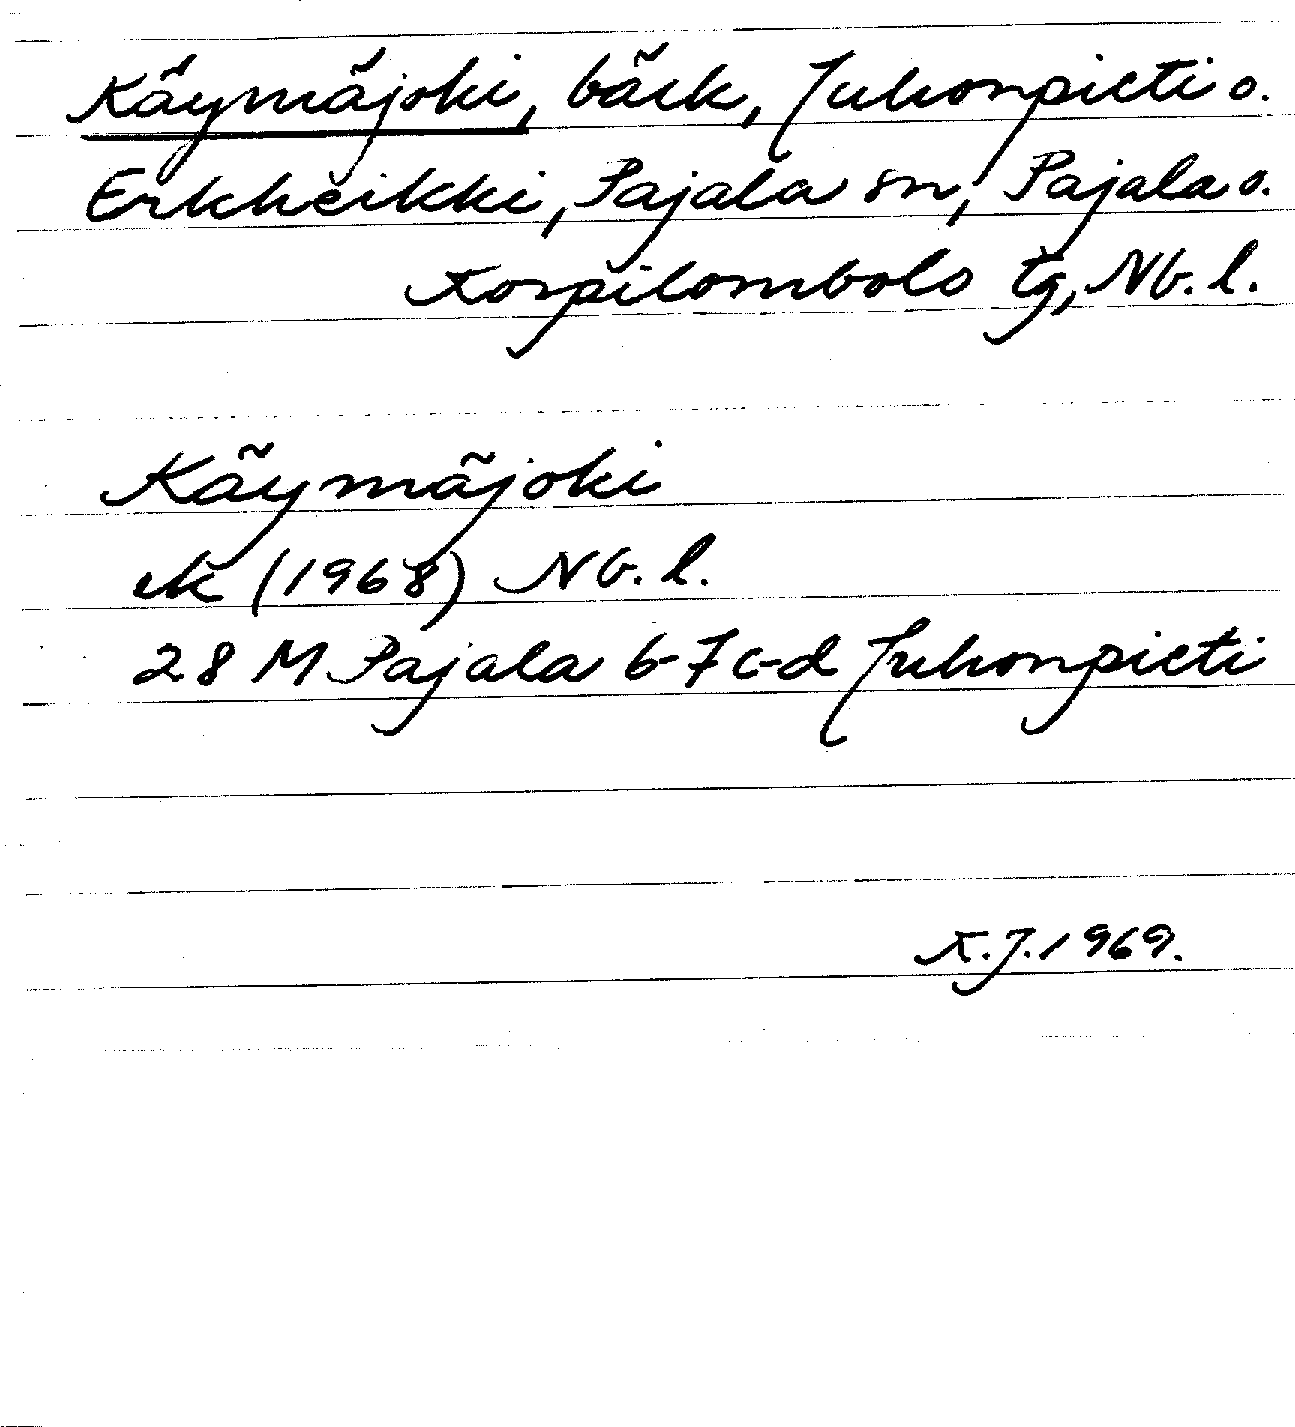 Käymäjoki, bäck, Juhonpieti o.
Erkheikki, Pajala sn, Pajala o.
Korpilombolo tg, Nb. l.
Käymäjoki
ek (1968) Nb. l.
28 M Pajala 6-7 c-d Juhonpieti
K.J. 1969.